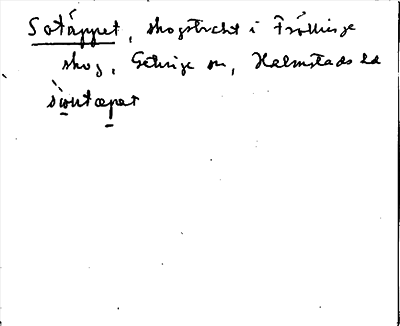 Sotäppet, skogstrakt i Fröllinge
skog, Getinge sn, Halmstads hd
sωutæpət